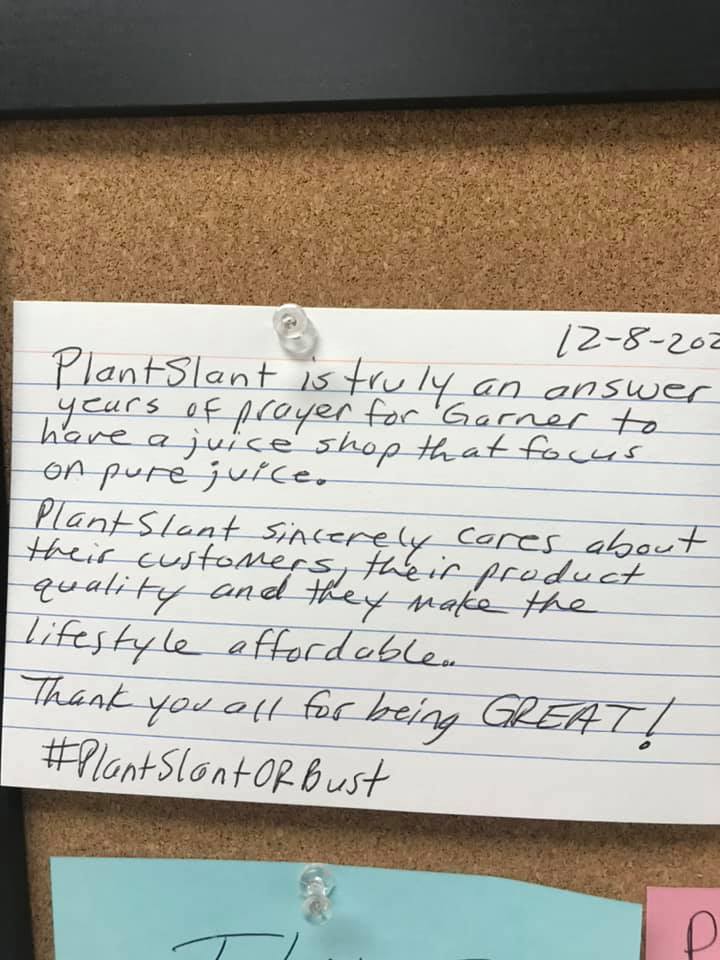 12-8-202
PlantSlant is truly an answer
years of prayer for Garner to
have a juice shop that focus
on pure juice.
PlantSlant sincerely cares about
their customers, their product
quality and they make the
lifestyle affordable..
Thank you all for being GREAT!
#PlantSlantORBust
P